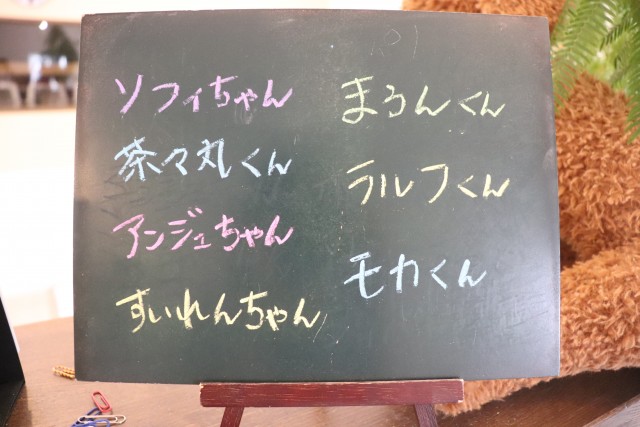 ソフィちゃん
茶々丸くん
アンジュちゃん
すいれんちゃん
まろんくん
ラルフくん
モカくん